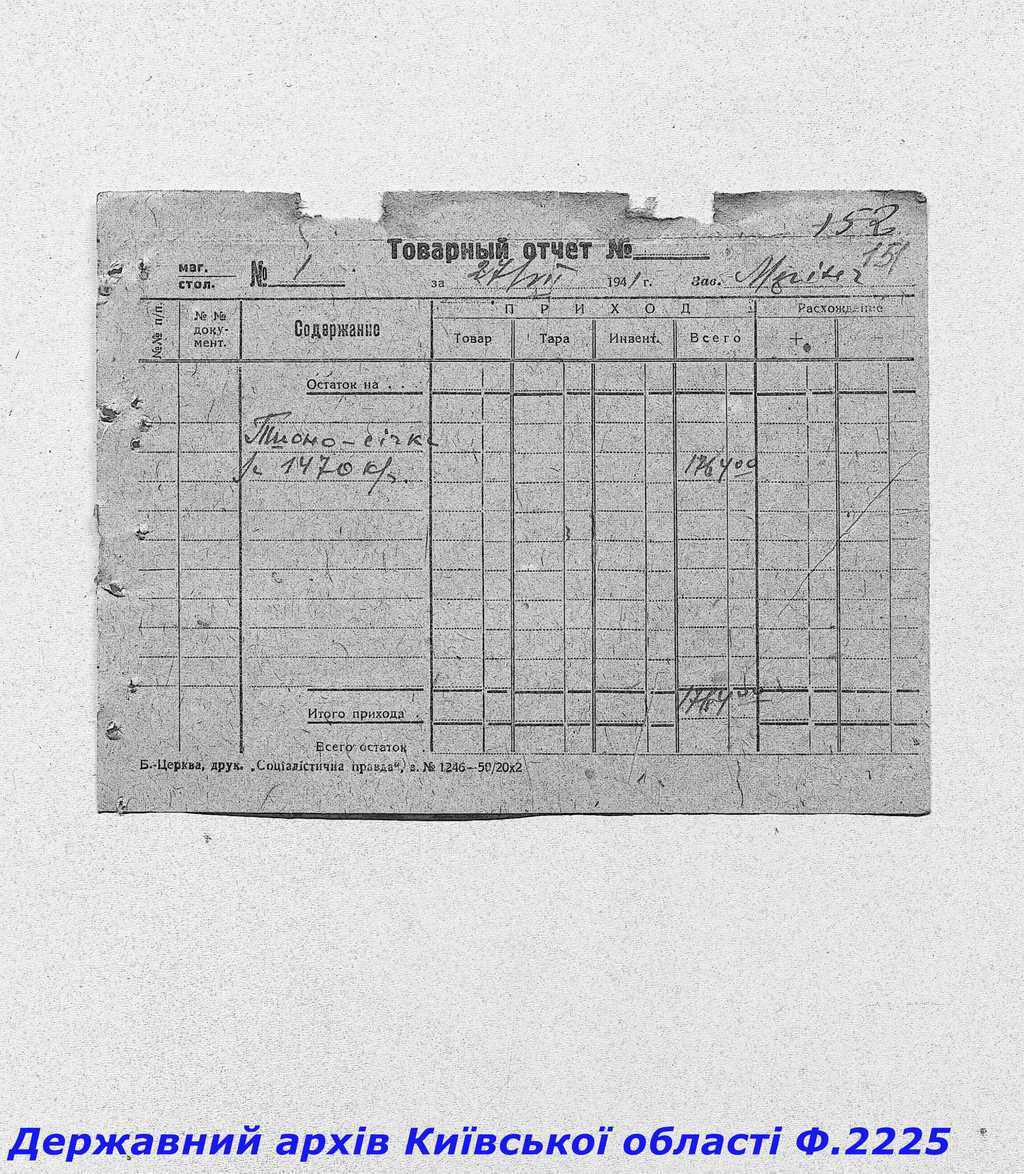 152
151
Товарный отчет №
маг.
стол. № 1 за 27/VII 1941 г. Зав.
№№ п/п.
№ № доку-мент.
Содержание
ПРИХОД
Расхождение
Товар Тара Инвент. Всего + -
Остаток на . . .
січка
1470 кг. 1764 00
Итого прихода 1764 00
Всего остаток
Б.-Церква, друк. „Соціалістична правда“, з. № 1246—50/20х2
Державний архів Київської області Ф.2225